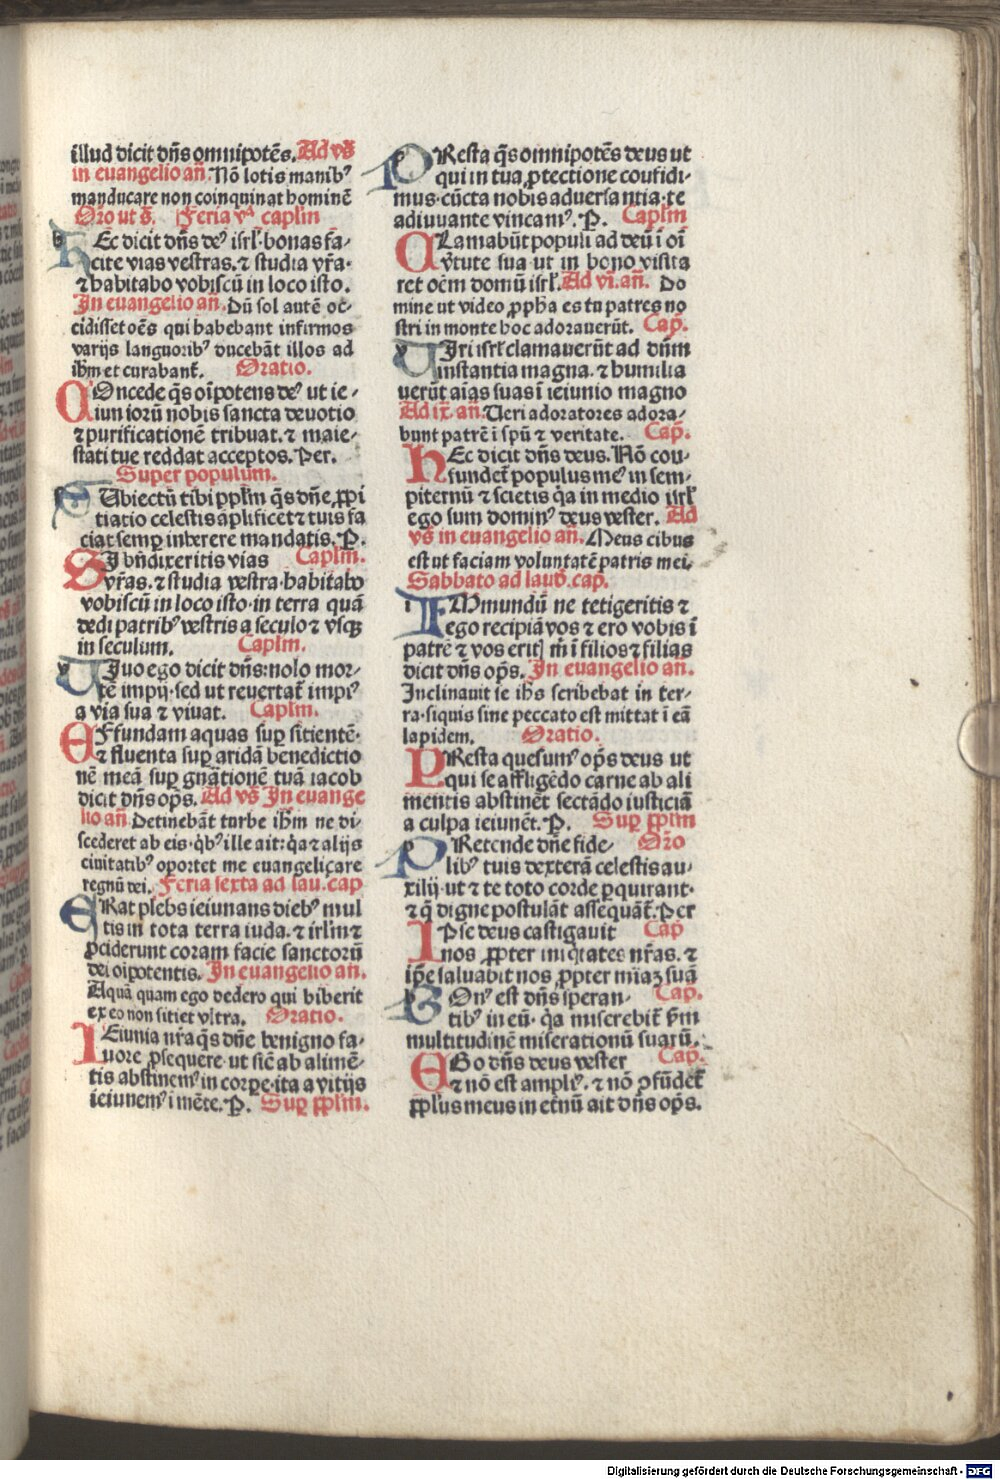 illud dicit dñs omnipotẽs. Ad vs̃
in euangelio añ. Nõ lotis manibꝰ
manducare non coinquinat hominẽ
Oro ut s̃. Feria vᵃ caplm
HEc dicit dñs deꝰ isrl̃· bonas fa-
cite vias vestras. ⁊ studia vr̃a·
⁊ habitabo vobiscũ in loco isto.
In euangelio añ. Dũ sol autẽ oc-
cidisset oẽs qui habebant infirmos
varijs languoribꝰ ducebãt illos ad
ihm̃ et curabant̃. Oratio.
COncede q̃s oĩpotens deꝰ ut ie-
iuniorũ nobis sancta deuotio
⁊ purificationẽ tribuat. ⁊ maie-
stati tue reddat acceptos. Per.
Super populum.
SUbiectũ tibi ppl̃m q̃s dñe ꝓpi
tiatio celestis ãplificet ⁊ tuis fa
ciat semꝑ inherere mandatis. P.
SI bñdixeritis vias Caplm̃.
vr̃as. ⁊ studia vestra· habitabo
vobiscũ in loco isto· in terra quã
dedi patribꝰ vestris a seculo ⁊ vsqꝫ
in seculum. Caplm̃.
UJuo ego dicit dñs: nolo mor-
tẽ impij· sed ut reuertat̃ impiꝰ
a via sua ⁊ viuat. Caplm̃.
EFfundam aquas suꝑ sitientẽ·
⁊ fluenta suꝑ aridã benedictio
nẽ meã suꝑ gnãtionẽ tuã iacob
dicit dñs op̃s. Ad vs̃ In euange
lio añ. Detinebãt turbe ihm̃ ne di-
scederet ab eis· q̃bꝰ ille ait: q̃a ⁊ alijs
ciuitatibꝰ oportet me euangeliçare
regnũ dei. Feria sexta ad lau. cap
ERat plebs ieiunans diebꝰ mul
tis in tota terra iuda. ⁊ irlm̃ ⁊
ꝓciderunt coram facie sanctorũ
dei oĩpotentis. In euangelio añ.
Aquã quam ego dedero qui biberit
ex eo non sitiet vltra. Oratio.
IEiunia nr̃a q̃s dñe benigno fa-
uore ꝓsequere· ut sic̃ ab alimẽ-
tis abstinemꝰ in corpe· ita a vitijs
ieiunemꝰ i mẽte. P. Suꝑ ꝓpl̃m.
PResta q̃s omnipotẽs deus ut
qui in tua ꝓtectione confidi-
mus· cũcta nobis aduersantia· te
adiuuante vincamꝰ. P. Caplm̃
CLamabũt populi ad deũ ĩ oĩ
v̓tute sua· ut in bono visita
ret oẽm domũ isrl̃. Ad vi. añ. Do
mine ut video ꝓpha es tu patres no
stri in monte hoc adorauerũt. Cap̃.
UJri isrl̃ clamauerũt ad dñm
instantia magna. ⁊ humilia
uerũt aĩas suas ĩ ieiunio magno
Ad ix̃. añ. Ueri adoratores adora-
bunt patrẽ i spũ ⁊ veritate. Cap̃.
HEc dicit dñs deus. Nõ con-
fundet̃ populus meꝰ in sem-
piternũ ⁊ scietis q̃a in medio isrl̃
ego sum dominꝰ deus vester. Ad
vs̃ in euangelio añ. Meus cibus
est ut faciam voluntatẽ patris mei.
Sabbato ad laud. cap̃.
IMmundũ ne tetigeritis ⁊
ego recipiã vos ⁊ ero vobis ĩ
patrẽ ⁊ vos eritꝭ m̃ ĩ filios ⁊ filias
dicit dñs op̃s. In euangelio añ.
Inclinauit se ih̃s scribebat in ter-
ra· siquis sine peccato est mittat ĩ eã
lapidem. Oratio.
PResta quesumꝰ op̃s deus ut
qui se affligẽdo carne ab ali
mentis abstinẽt sectãdo iusticiã
a culpa ieiunẽt. P. Suꝑ ꝓplm
PRetende dñe fide- Oro
libꝰ tuis dexterã celestis au-
xilij· ut ⁊ te toto corde ꝑquirant·
⁊ q̃ digne postulãt assequãt̃. Per
IPse deus castigauit Cap
nos ꝓpter iniqitates nr̃as. ⁊
ip̃e saluabit nos ꝓpter mĩaꝫ suã
BOnꝰ est dñs speran- Cap.
tibꝰ in eũ· q̃a miserebit̃ s̃m
multitudinẽ miserationũ suarũ.
EGo dñs deus vester Cap.
⁊ nõ est ampliꝰ. ⁊ nõ ꝯfũdet̃
ꝓpl̃us meus in et̃nũ ait dñs op̃s.
Digitalisierung gefördert durch die Deutsche Forschungsgemeinschaft - DFG